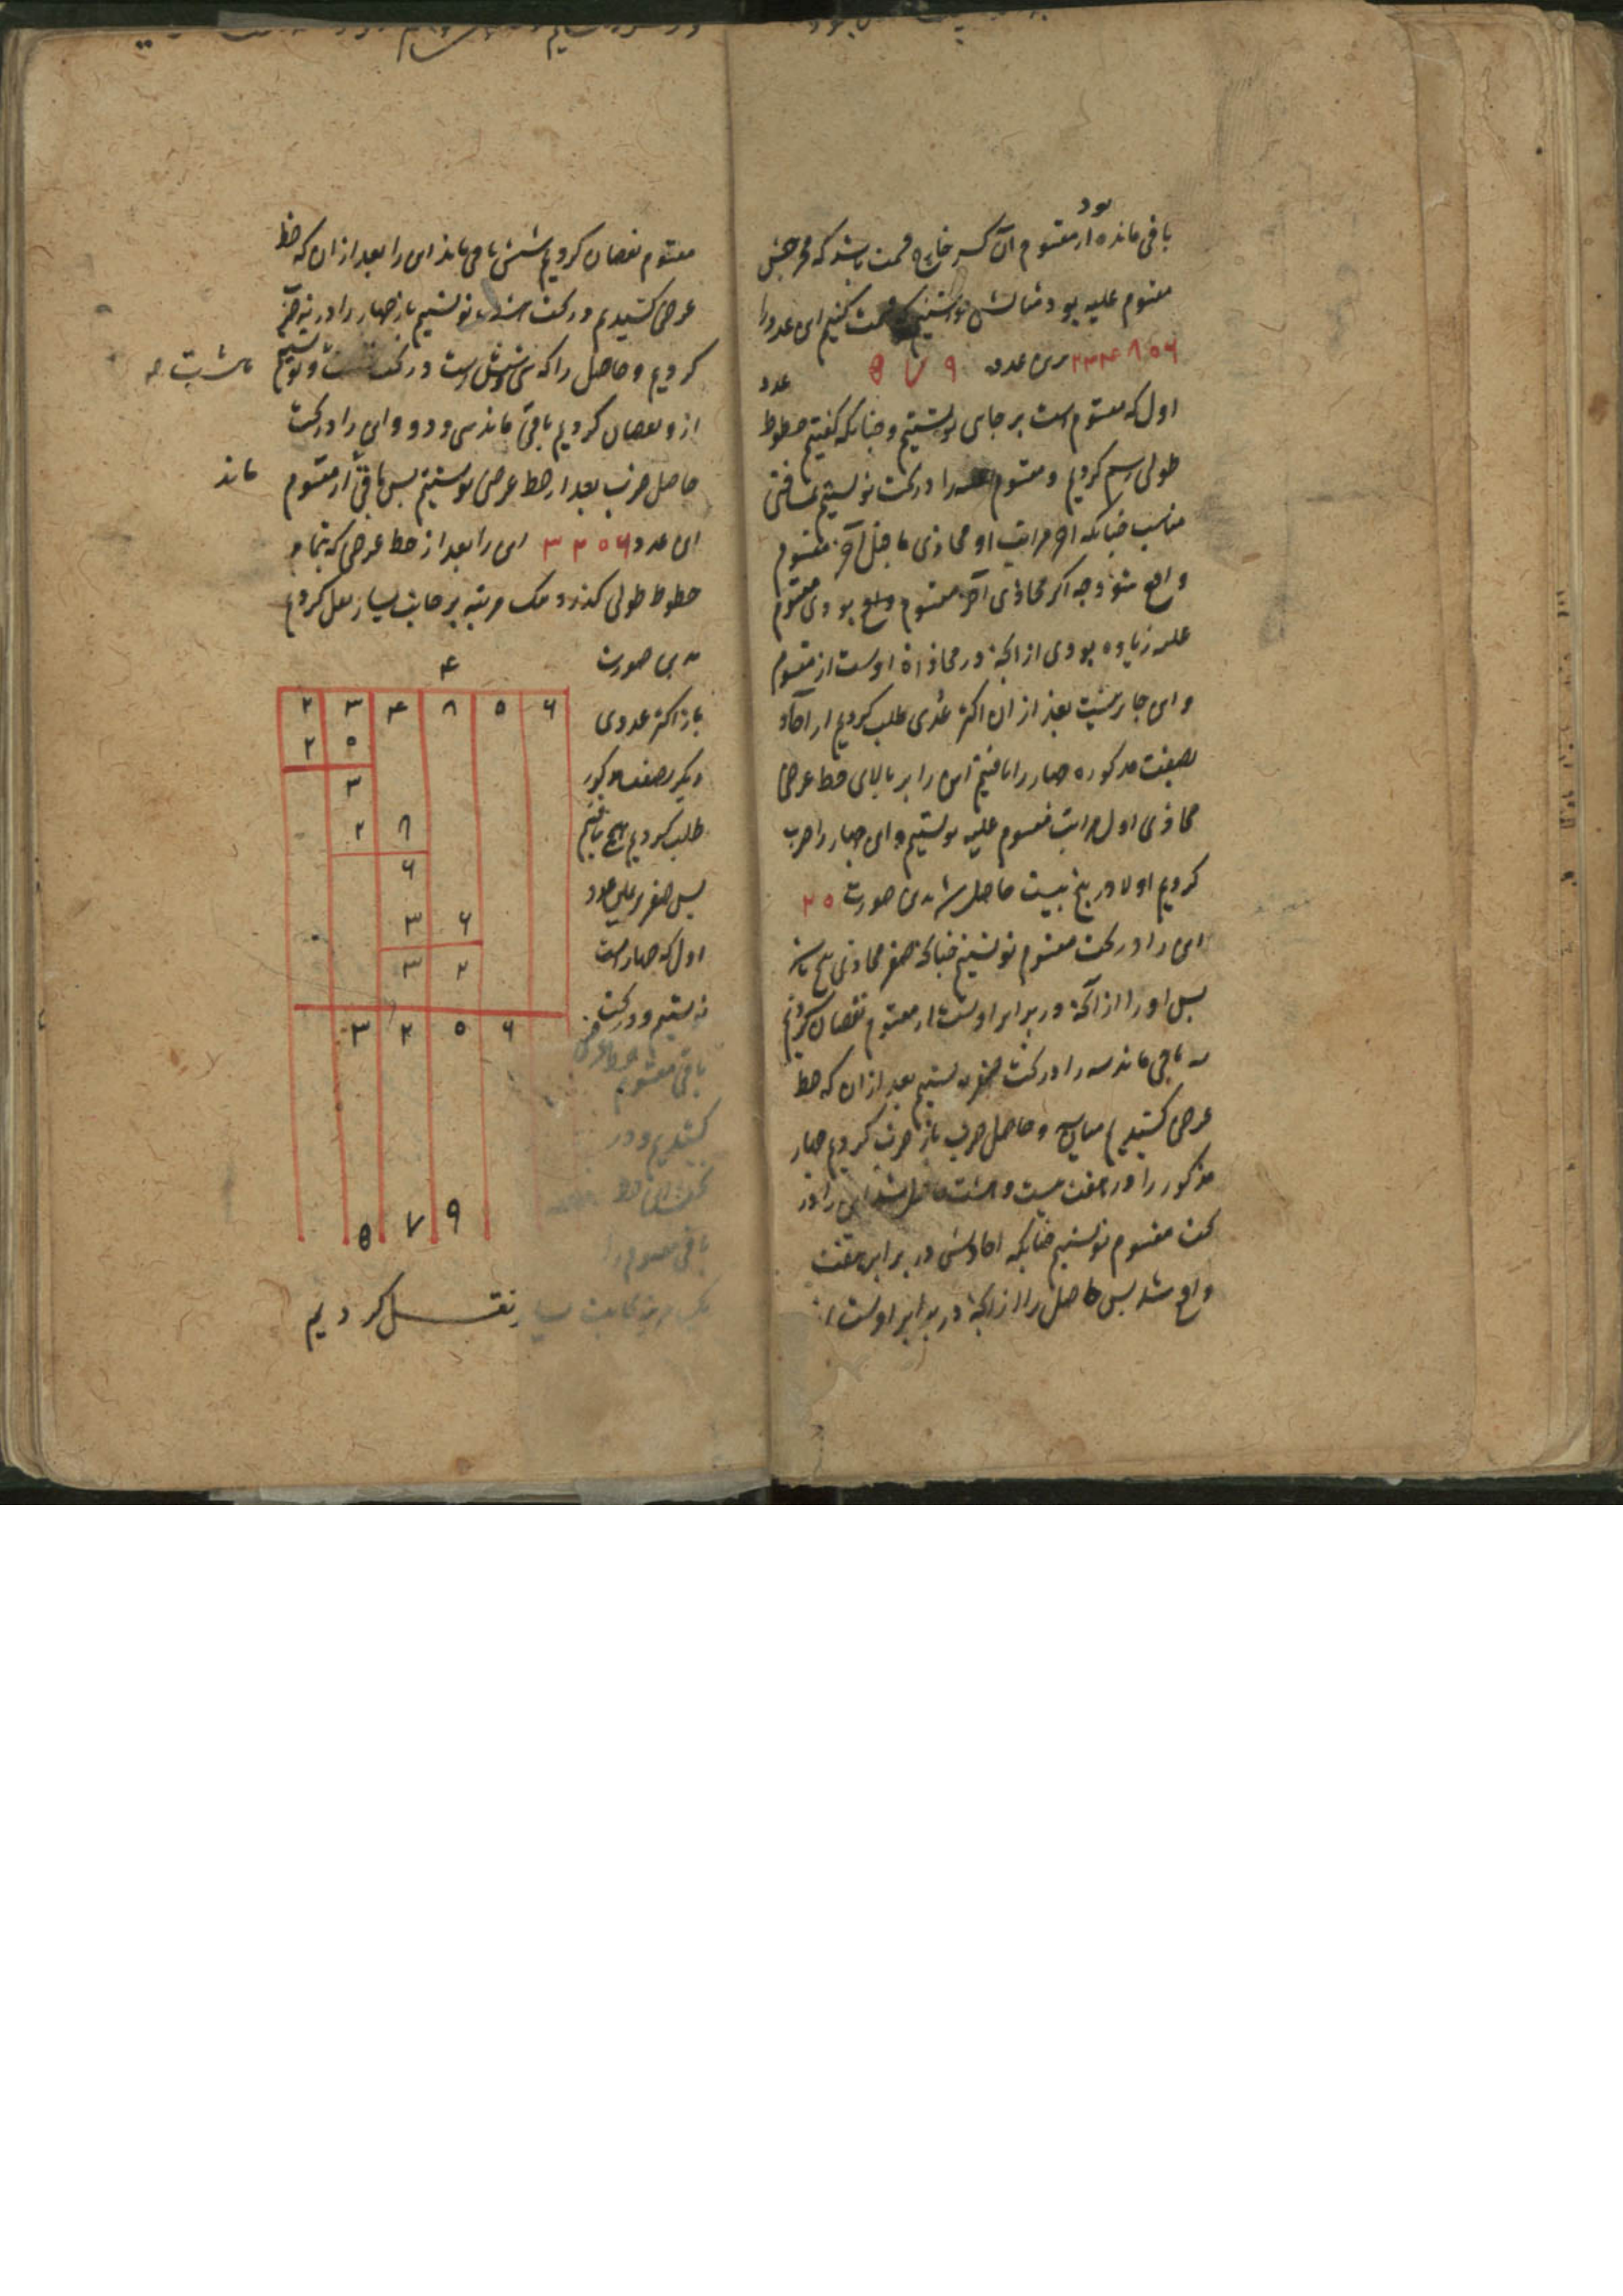 بود
باقی مانده از مقسوم آن کسر خارج قسمت باشد که مخرجش
مقسوم علیه بود مثالش خواستیم که قسمت کنیم این عدد را
۲۳۴۸۵۶ برین عدد ۵۷۹ عدد
اول که مقسوم است بر جای نوشتیم و چنانکه گفتیم خطوط
طولی رسم کردیم و مقسوم علیه را در تحت نوشتیم بمسافتی
مناسب چنانکه آخر مراتب او محاذی ما قبل آخر مقسوم
واقع شود چه اگر محاذی آخر مقسوم واقع بودی مقسوم
علیه زیاده بودی از آنچه در محاذاة اوست از مقسوم
و این جایز نیست بعد از آن اکثر عددی طلب کردیم از آحاد
بصفت مذکوره چهار را یافتیم این را بر بالای خط عرضی
محاذی اول مراتب مقسوم علیه نوشتیم و این چهار را ضرب
کردیم اولا در پنج بیست حاصل شد بدین صورت ۲۵
این را در تحت مقسوم نوشتیم چنانکه صفر محاذی پنج باشد
پس او را از آنچه در برابر اوست از مقسوم نقصان کردیم
سه باقی ماند سه را در تحت صفر نوشتیم بعد از آن که خط
عرضی کشیدیم میان سه و حاصل ضرب باز ضرب کردیم چهار
مذکور را در هفت بیست و هشت حاصل شد این را در
تحت مقسوم نوشتیم چنانکه آحادش در برابر هفت
واقع شد پس حاصل را از آنچه در برابر اوست از
مقسوم نقصان کردیم شش باقی ماند این را بعد از آن که خط
عرضی کشیدیم در تحت هشت نوشتیم باز چهار را در نه ضرب
کردیم و حاصل را که سی و شش است در تحت نوشتیم
از و نقصان کردیم باقی ماند سی و دو و این را در تحت
حاصل ضرب بعد از خط عرضی نوشتیم پس باقی از مقسوم ماند
این عدد ۳۲۵۶ این را بعد از خط عرضی که بتمام
خطوط طولی گذرد یک مرتبه بر جانب یسار نقل کردیم
بدین صورت
۴
۲ ۳ ۴ ۸ ۵ ۶
۲ ۵
۳
۲ ۸
۶
۳ ۶
۳ ۲
۳ ۲ ۵ ۶
۵ ۷ ۹
باز اکثر عددی
دیگر بصفت مذکور
طلب کردیم هیچ نیافتیم
پس صفر بر یمین عدد
اول که چهار است
نوشتیم و در تحت
باقی مقسوم خط عرضی
کشیدیم و در
تحت این خط
باقی مقسوم را
یک مرتبه بجانب یسار نقل کردیم